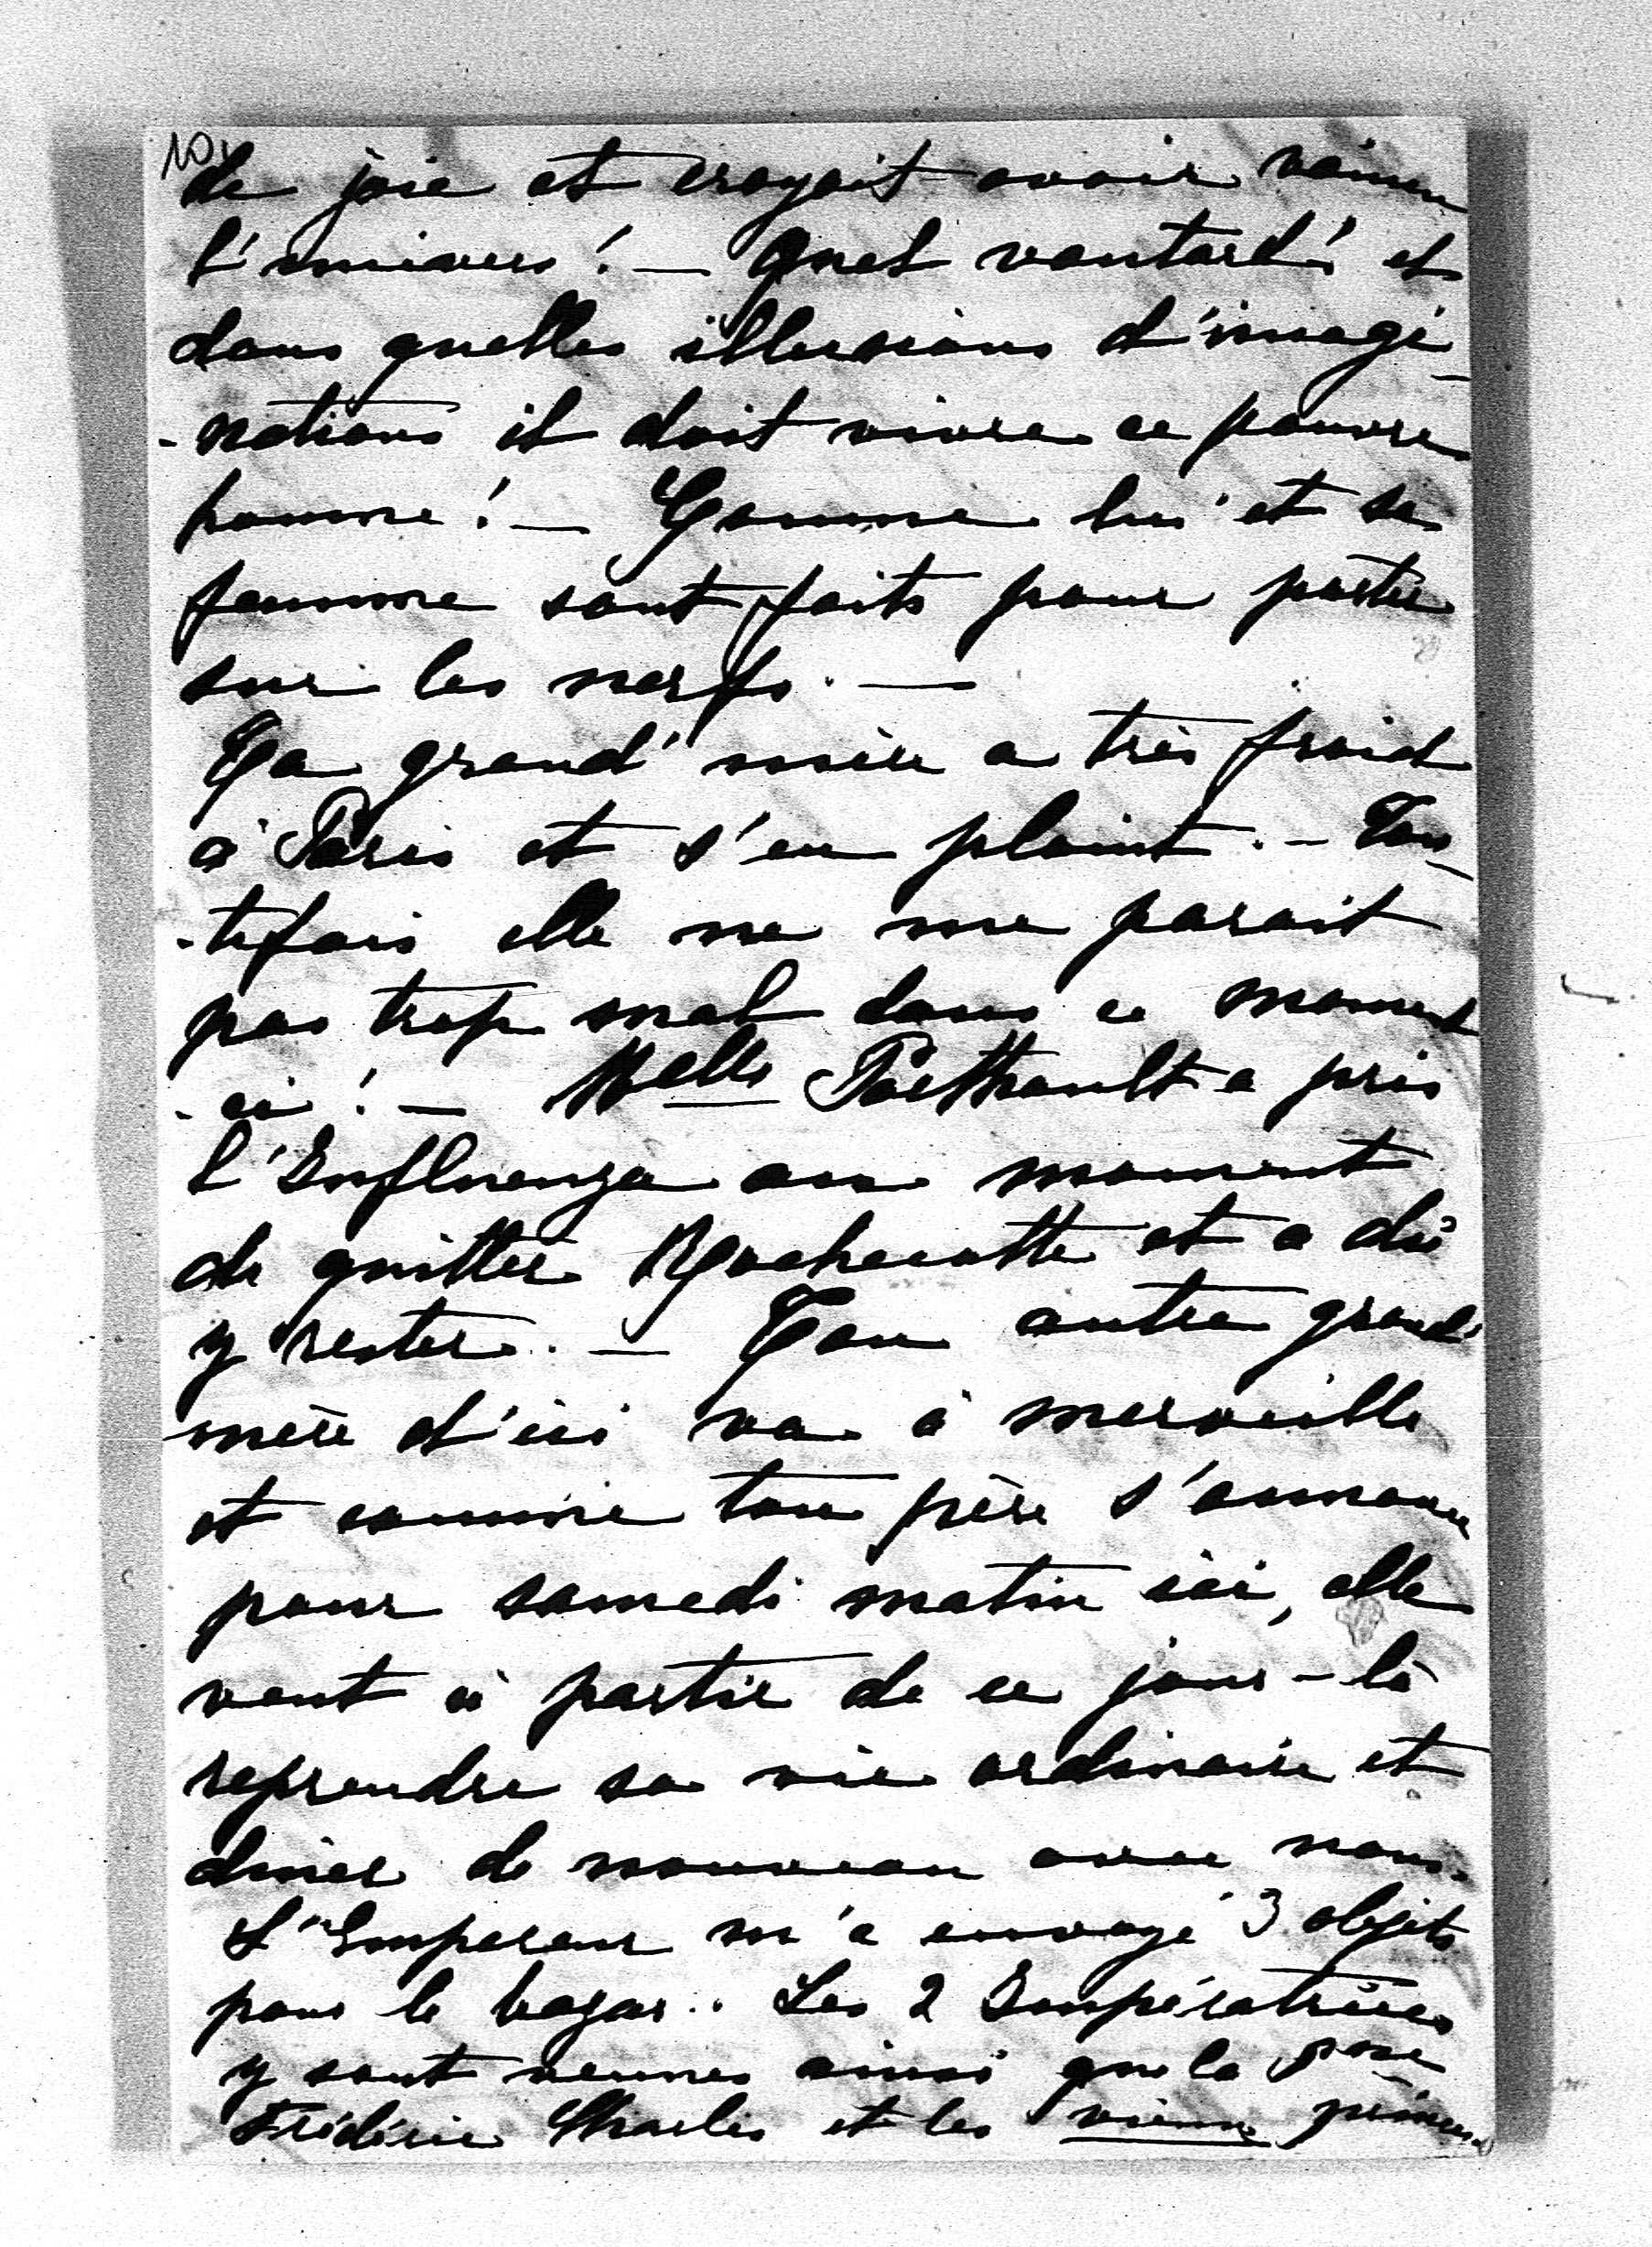 10)
de joie et croyait avoir vaincu
l'univers! — Quel vantard! et
dans quelles illusions d'imagi-
-nations il doit vivre ce pauvre
homme! — Comme lui et sa
femme sont faits pour porter
sur les nerfs. —
Ta grand'mère a très froid
à Paris et s'en plaint. — Tou-
-tefois elle ne me parait
pas trop mal dans ce moment
-ci! — Melle a pris
l'Influenza au moment
de quitter Rochecotte et a dû
y rester. — Ton autre grand'
mère d'ici va à merveille
et comme ton père s'annonce
pour samedi matin ici, elle
veut à partir de ce jour-là
reprendre sa vie ordinaire et
dîner de nouveau avec nous.
L'Empereur m'a envoyé 3 objets
pour le bazar. Les 2 Impératrices
y sont venues ainsi que la Psse
Frédéric Charles et les vieux princes